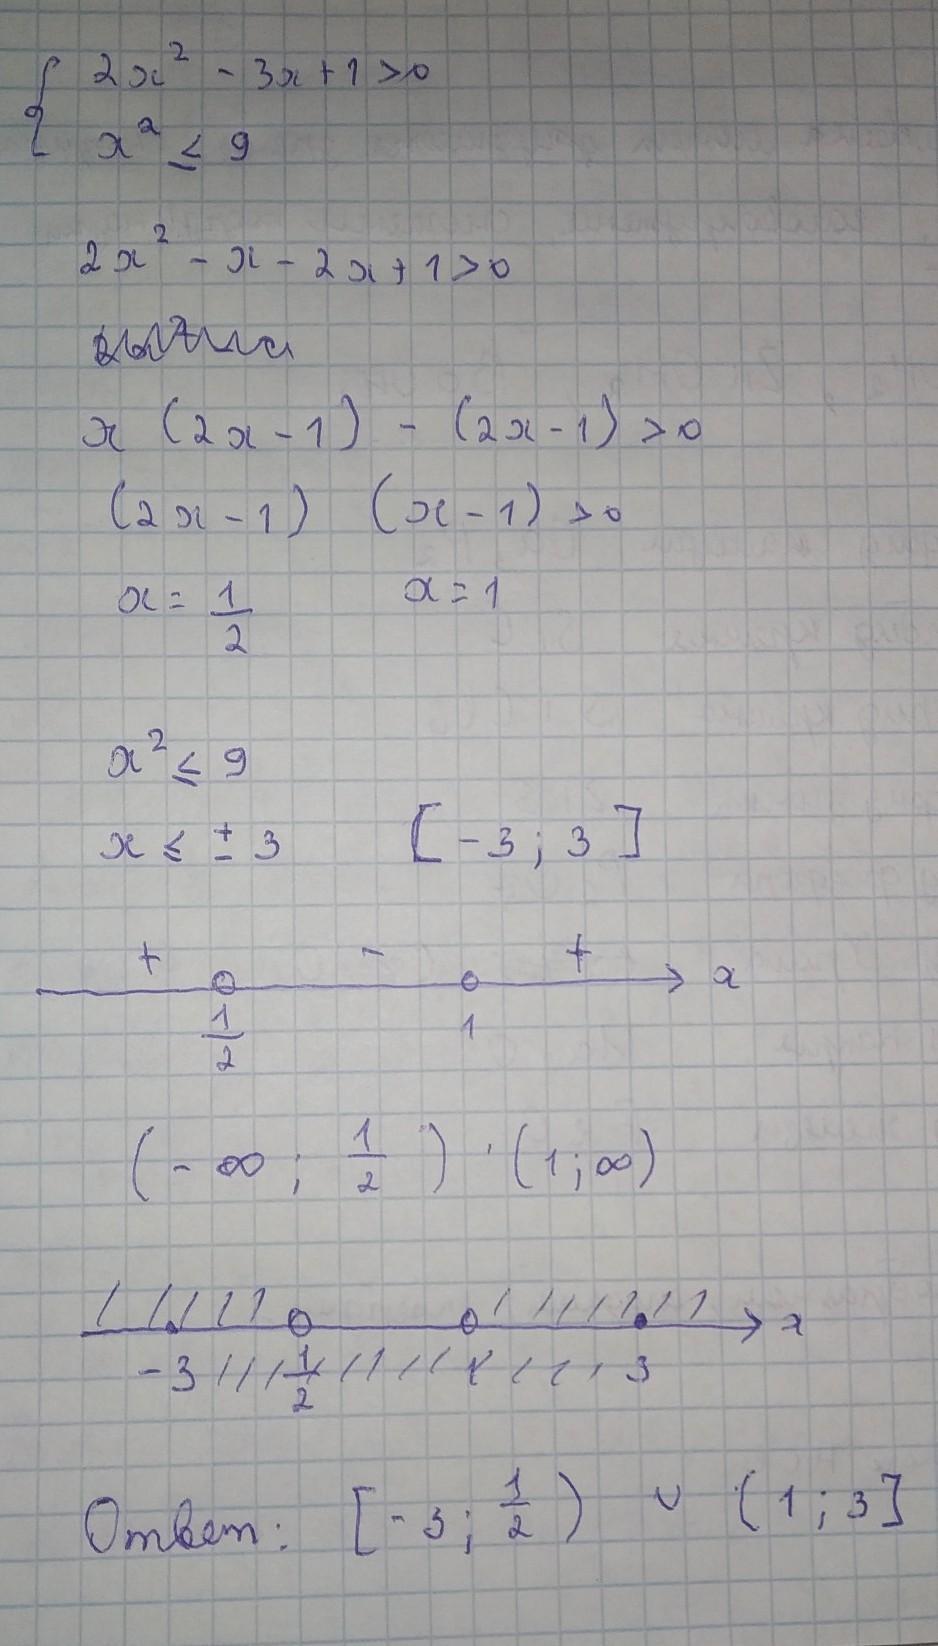 { 2x² - 3x + 1 > 0
x² ≤ 9
2x² - x - 2x + 1 > 0
x (2x - 1) - (2x - 1) > 0
(2x - 1) (x - 1) > 0
x = 1/2 x = 1
x² ≤ 9
x ≤ ± 3 [-3; 3]
+ - + x
1/2 1
(-∞; 1/2) (1; ∞)
x
-3 1/2 3
Ответ: [-3; 1/2) ∪ (1; 3]